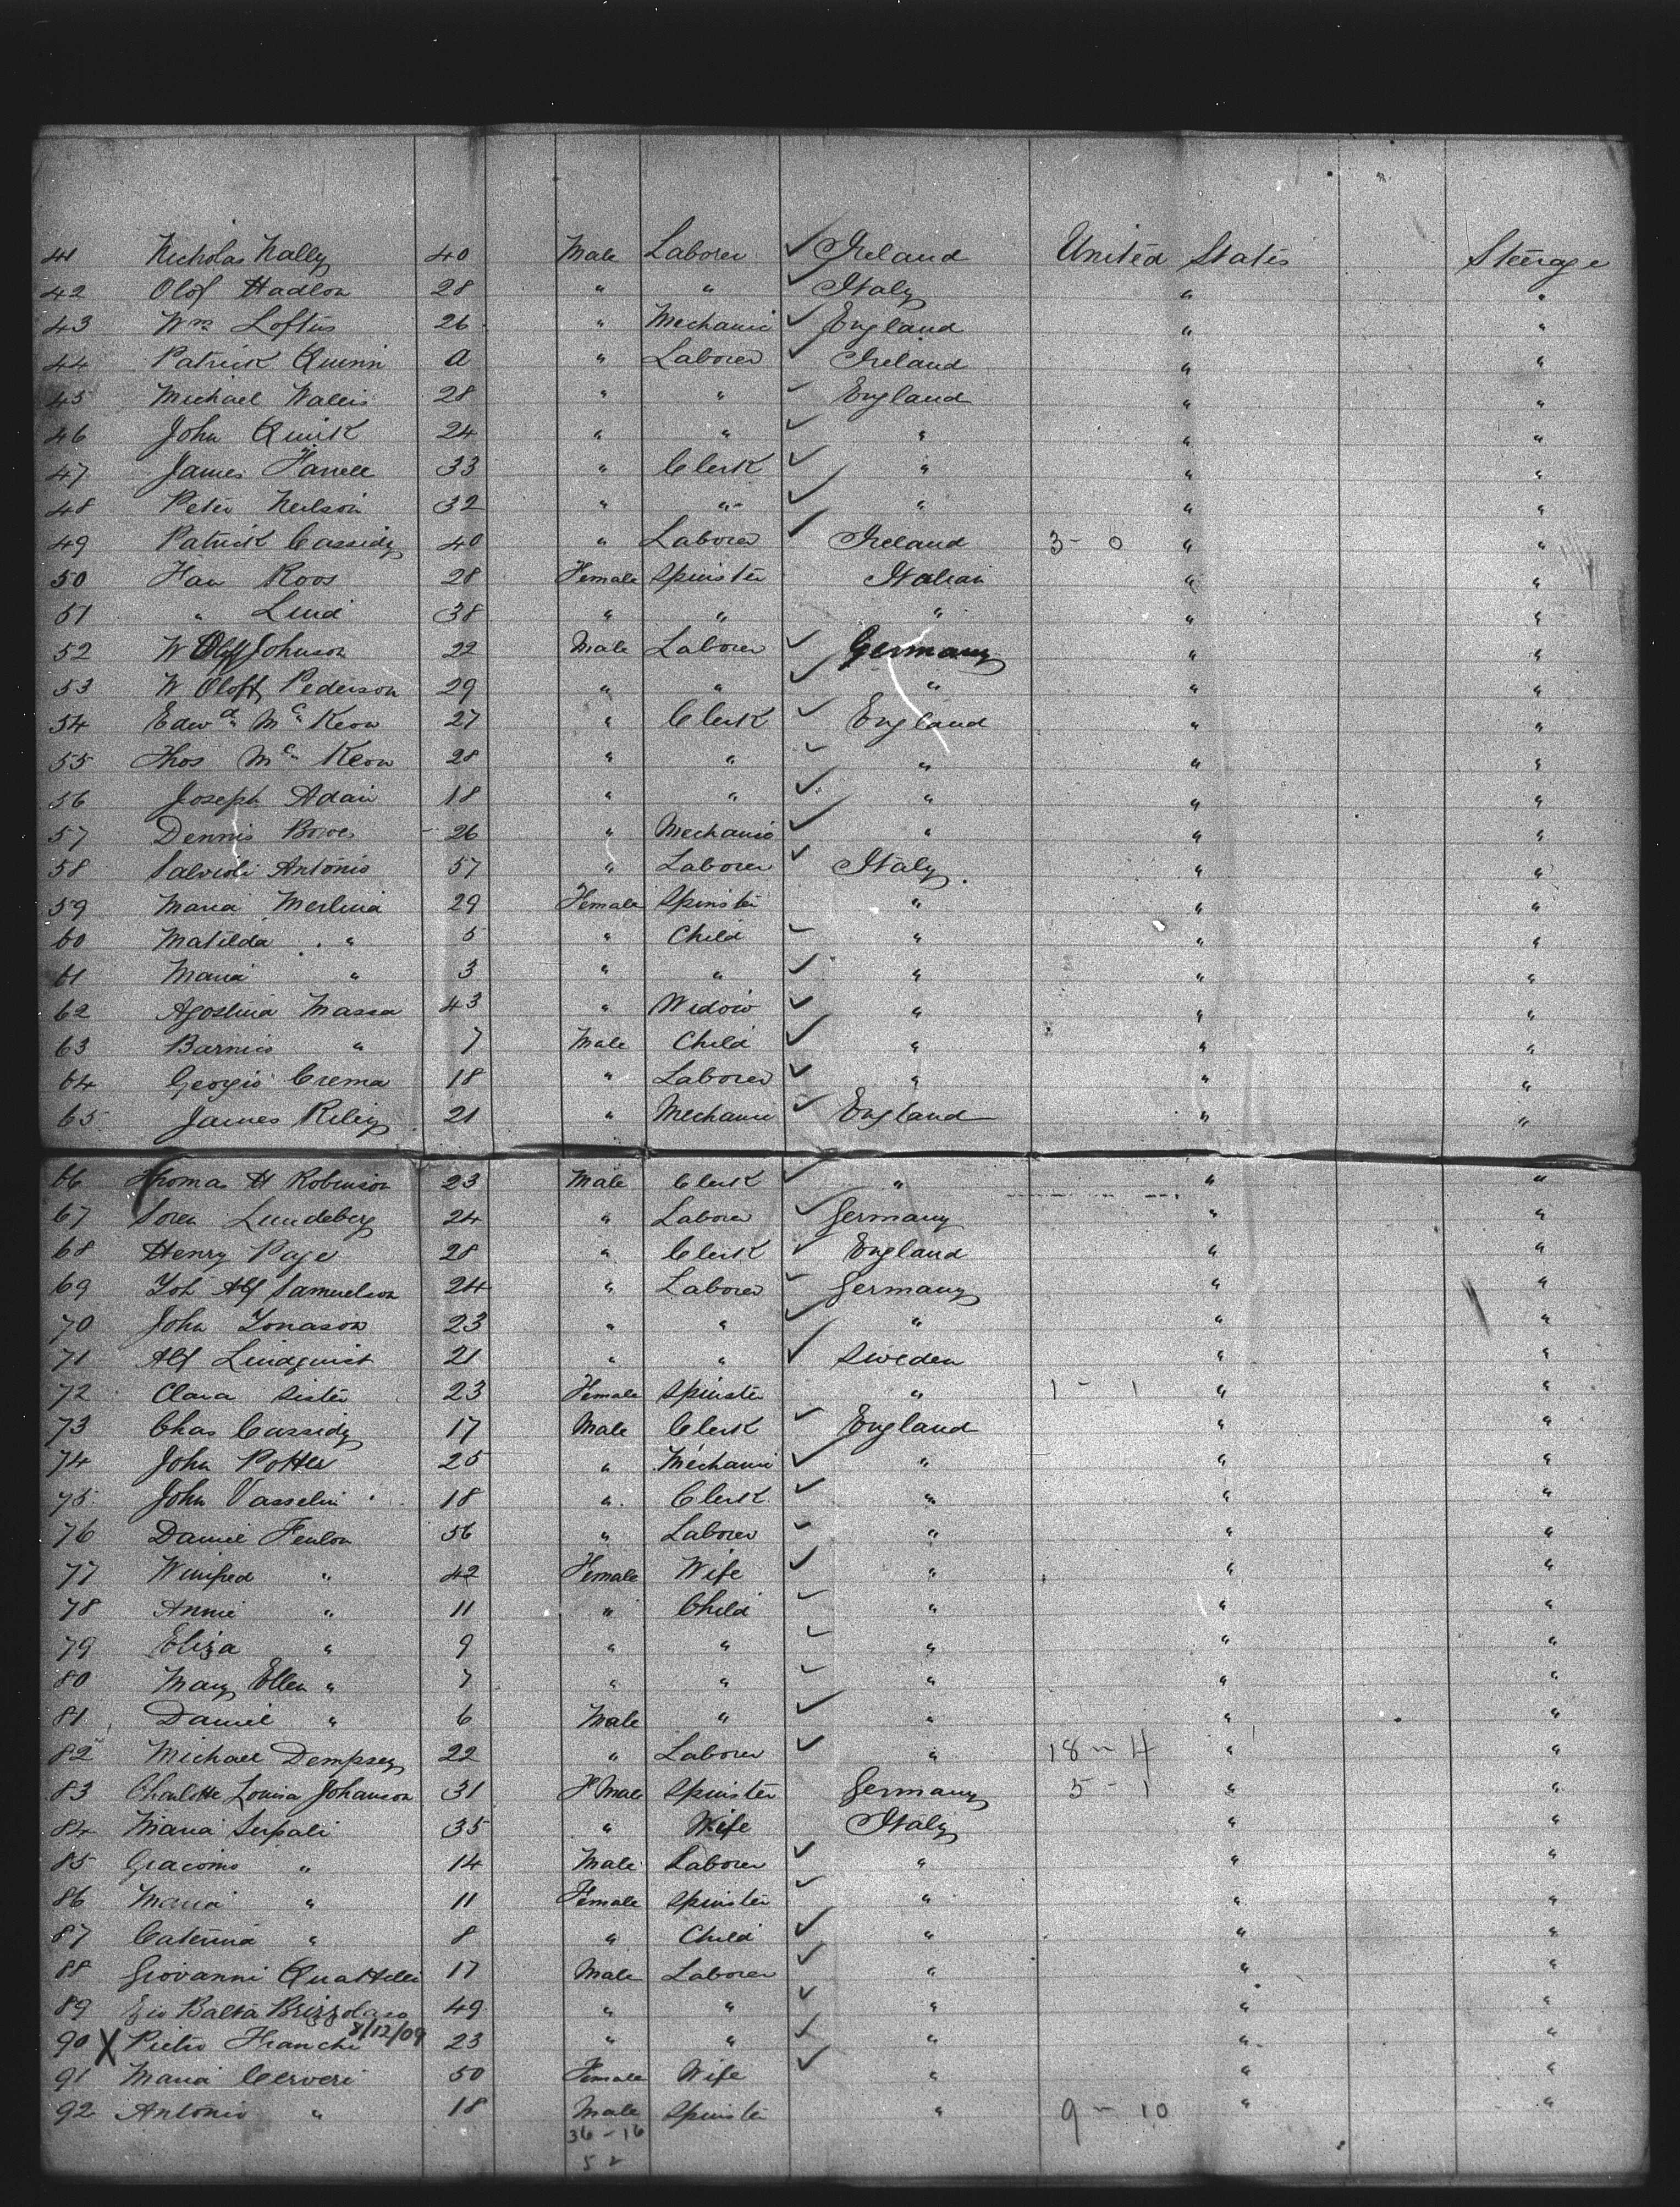 41 Nicholas Nally 40 Male Laborer ✓ Ireland United States Steerage
42 Olof Hadlon 28 " " ✓ Italy " "
43 Wm Loftus 26 " Mechanic ✓ England " "
44 Patrick Quinn a " Laborer ✓ Ireland " "
45 Michael Wallis 28 " " ✓ England " "
46 John Quirk 24 " " ✓ " " "
47 James Farrell 33 " Clerk ✓ " " "
48 Peter Neilson 32 " " ✓ " " "
49 Patrick Cassidy 40 " Laborer ✓ Ireland 3 - 0 " "
50 Han Roos 28 Female Spinster Italian " "
51 " Lind 38 " " " " "
52 W Oloff Johnson 22 Male Laborer ✓ Germany " "
53 W Oloff Pederson 29 " " ✓ " " "
54 Edwd Mc Keow 27 " Clerk ✓ England " "
55 Thos Mc Keow 28 " " ✓ " " "
56 Joseph Adair 18 " " ✓ " " "
57 Dennis Bowes 26 " Mechanic ✓ " " "
58 Salvioli Antonio 57 " Laborer ✓ Italy " "
59 Maria Merlina 29 Female Spinster " " "
60 Matilda " 5 " Child ✓ " " "
61 Maria " 3 " " ✓ " " "
62 Agostina Massa 43 " Widow ✓ " " "
63 " 7 Male Child ✓ " " "
64 Georgio Crema 18 " Laborer ✓ " " "
65 James Riley 21 " Mechanic ✓ England " "
66 Thomas H Robinson 23 Male Clerk ✓ " " "
67 Soren Lundeberg 24 " Laborer ✓ Germany " "
68 Henry Page 28 " Clerk ✓ England " "
69 Joh Alf Samuelson 24 " Laborer ✓ Germany " "
70 John Jonason 23 " " ✓ " " "
71 Alf Lindquist 21 " " ✓ Sweden " "
72 Clara Sister 23 Female Spinster " 1 - 1 " "
73 Chas Cassidy 17 Male Clerk ✓ England " "
74 John Potter 25 " Mechanic ✓ " " "
75 John Vasselin 18 " Clerk ✓ " " "
76 Daniel Fenlon 56 " Laborer ✓ " " "
77 Winifred " 42 Female Wife ✓ " " "
78 Annie " 11 " Child ✓ " " "
79 Eliza " 9 " " ✓ " " "
80 Mary Ellen " 7 " " ✓ " " "
81 Daniel " 6 Male " ✓ " " "
82 Michael Dempsey 22 " Laborer ✓ " 18 - 4 " "
83 Charlotte Louisa Johanson 31 F Male Spinster Germany 5 - 1 " "
84 Maria Serpali 35 " Wife Italy " "
85 Giacomo " 14 Male Laborer ✓ " " "
86 Maria " 11 Female Spinster ✓ " " "
87 Caterina " 8 " Child ✓ " " "
88 Giovanni 17 Male Laborer ✓ " " "
89 Gio Balta Brizzolaro 49 " " ✓ " " "
90 X Pietro Franchi 8/12/09 23 " " ✓ " " "
91 Maria Cerveri 50 Female Wife ✓ " " "
92 Antonio " 18 Male Spinster " 9 - 10 " "
36 - 16
52